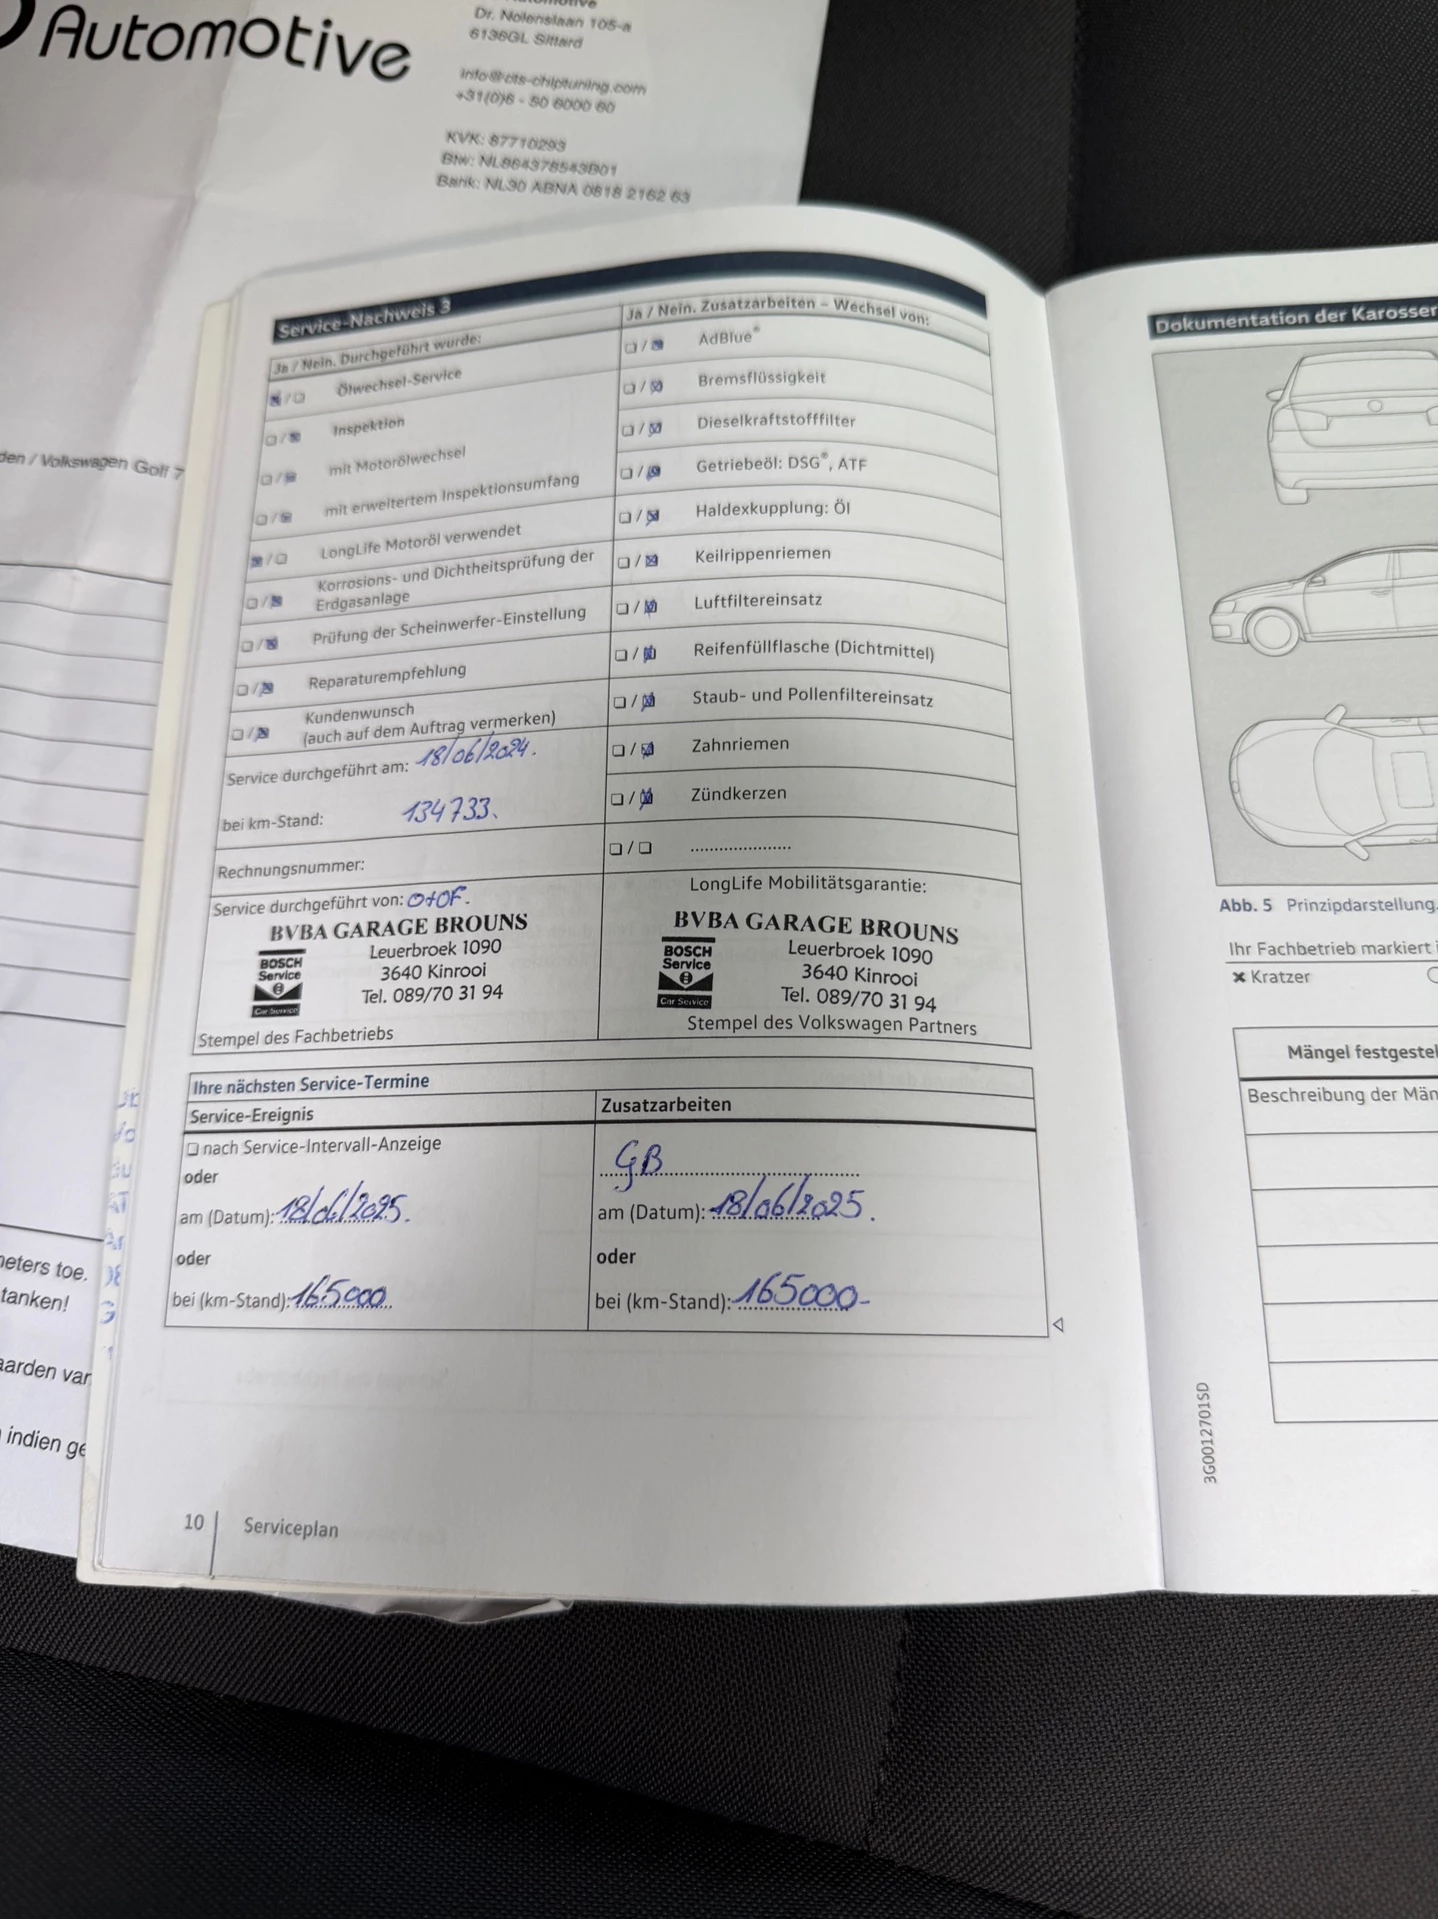 Automotive
Dr. Nolenslaan 105-a
6136GL Sittard
info@cts-chiptuning.com
+31(0)6 - 50 6000 60
KVK: 87710293
Btw: NL864378543B01
Bank: NL30 ABNA 0818 2162 63
den / Volkswagen Golf 7
neters toe.
tanken!
aarden var
indien ge
Service-Nachweis 3
Ja / Nein. Durchgeführt wurde:
Ölwechsel-Service
Inspektion
mit Motorölwechsel
mit erweitertem Inspektionsumfang
LongLife Motoröl verwendet
Korrosions- und Dichtheitsprüfung der
Erdgasanlage
Prüfung der Scheinwerfer-Einstellung
Reparaturempfehlung
Kundenwunsch
(auch auf dem Auftrag vermerken)
Service durchgeführt am: 18/06/2024.
bei km-Stand: 134733.
Rechnungsnummer:
Service durchgeführt von: O+OF.
BVBA GARAGE BROUNS
BOSCH
Service
Car Service
Leuerbroek 1090
3640 Kinrooi
Tel. 089/70 31 94
Stempel des Fachbetriebs
Ja / Nein. Zusatzarbeiten – Wechsel von:
AdBlue®
Bremsflüssigkeit
Dieselkraftstofffilter
Getriebeöl: DSG®, ATF
Haldexkupplung: Öl
Keilrippenriemen
Luftfiltereinsatz
Reifenfüllflasche (Dichtmittel)
Staub- und Pollenfiltereinsatz
Zahnriemen
Zündkerzen
.....................
LongLife Mobilitätsgarantie:
BVBA GARAGE BROUNS
BOSCH
Service
Car Service
Leuerbroek 1090
3640 Kinrooi
Tel. 089/70 31 94
Stempel des Volkswagen Partners
Ihre nächsten Service-Termine
Service-Ereignis
nach Service-Intervall-Anzeige
oder
am (Datum): 18/06/2025.
oder
bei (km-Stand): 165000
Zusatzarbeiten
GB
am (Datum): 18/06/2025.
oder
bei (km-Stand): 165000-
10
Serviceplan
Dokumentation der Karosser
Abb. 5 Prinzipdarstellung.
Ihr Fachbetrieb markiert i
✖ Kratzer
Mängel festgestel
Beschreibung der Män
3G0012701SD